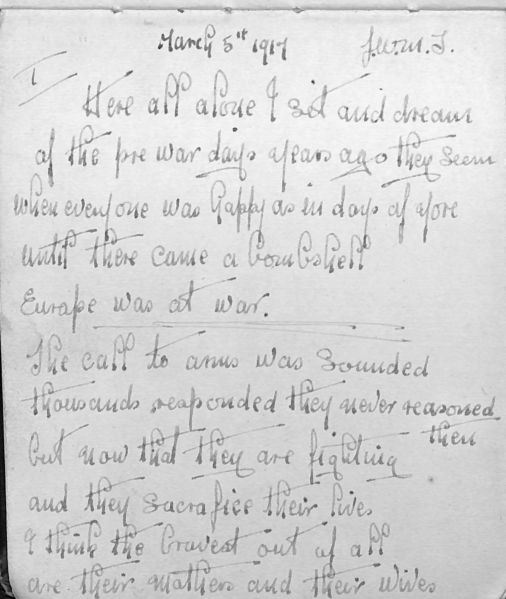 March 5th 1917 J.W.M.T.
I
Here all alone I sit and dream
of the pre war days years ago they seem
when everyone was happy as in days of yore
until there came a bombshell
Europe was at war.
The call to arms was sounded
thousands responded they never reasoned
then
but now that they are fighting
and they sacrafice their lives
I think the bravest out of all
are their mothers and their wives